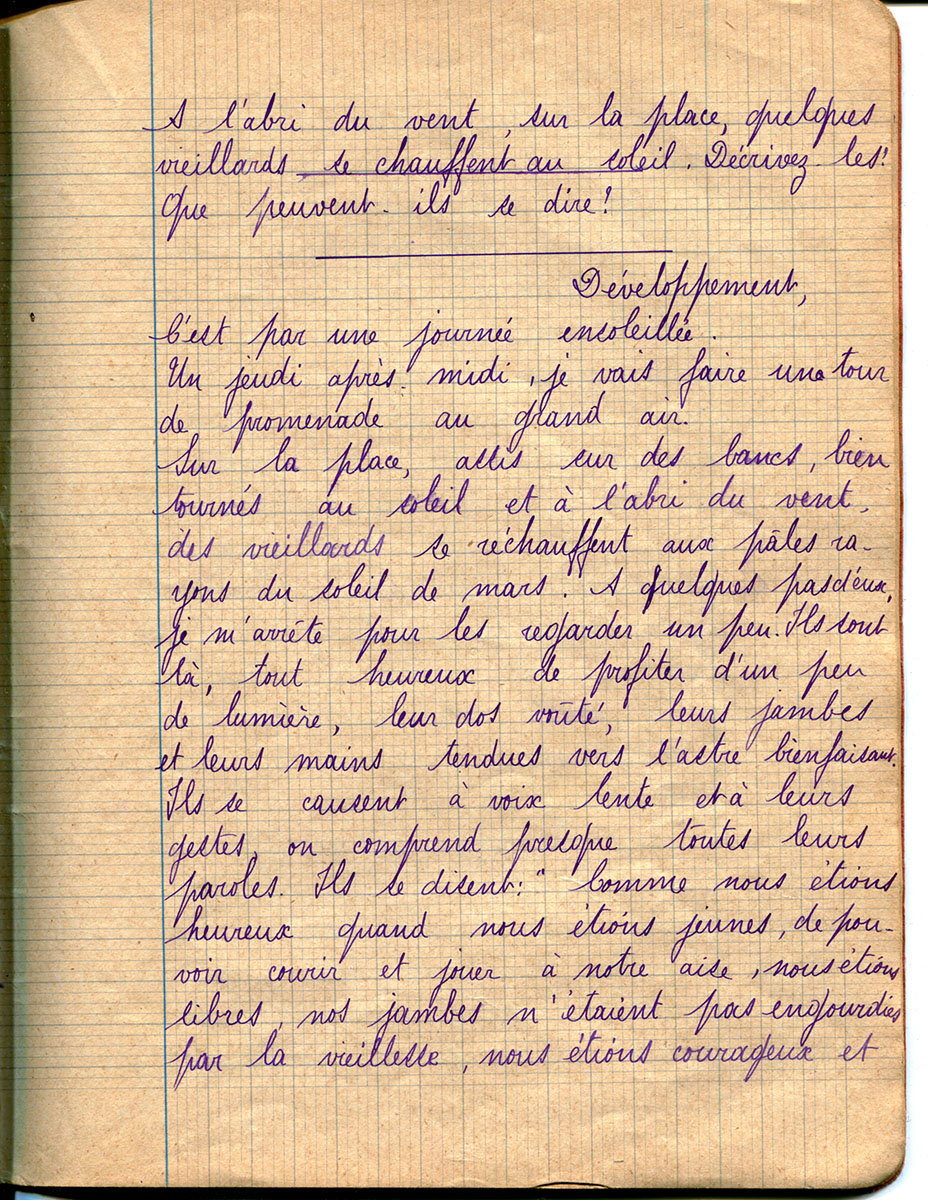 A l'abri du vent, sur la place, quelques
vieillards se chauffent au soleil. Décrivez-les!
Que peuvent-ils se dire!
Développement,
C'est par une journée ensoleillée.
Un jeudi après-midi, je vais faire un tour
de promenade au grand air.
Sur la place, assis sur des bancs, bien
tournés au soleil et à l'abri du vent,
des vieillards se réchauffent aux pâles ra-
yons du soleil de mars. A quelques pas d'eux,
je m'arrête pour les regarder un peu. Ils sont
là, tout heureux de profiter d'un peu
de lumière, leur dos voûté, leurs jambes
et leurs mains tendues vers l'astre bienfaisant.
Ils se causent à voix lente et à leurs
gestes, on comprend presque toutes leurs
paroles. Ils se disent: "Comme nous étions
heureux quand nous étions jeunes, de pou-
voir courir et jouer à notre aise, nous étions
libres, nos jambes n'étaient pas engourdies
par la vieillesse, nous étions courageux et